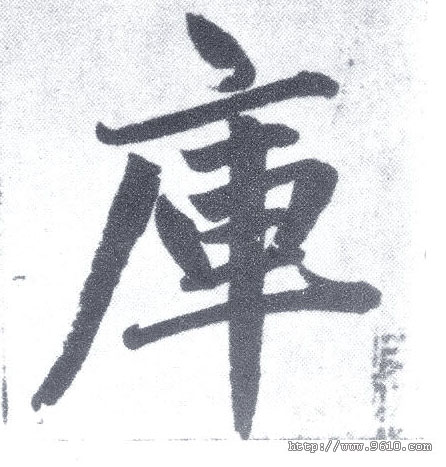 庫
http://www.9610.com